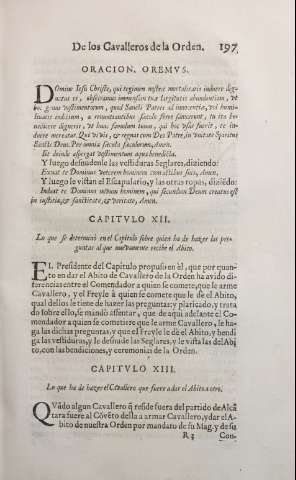 De los Cavalleros de la Orden. 197
ORACION. OREMVS.
DOmine Iesu Christe, qui tegimen nostræ mortalitatis induere dig-
natus es, obsecramus immensam tuæ largitatis abundantiam, vt
hoc genus vestimentorum, quod Sancti Patres ad innocentiæ, vel humi-
litatis indicium, à renuntiantibus sæculo ferre sanxerunt, tu ita be-
nedicere digneris, vt hunc famulum tuum, qui hoc vsus fuerit, te in-
duere mereatur. Qui vivis, & regnas cum Deo Patre, in vnitate Spiritus
Sancti Deus. Per omnia sæcula sæculorum, Amen.
Et deinde aspergat vestimentum aqua benedicta.
Y luego desnudenle las vestiduras Seglares, diziendo:
Exuat te Dominus veterem hominem cum actibus suis, Amen.
Y luego le vistan el Escapulario, y las otras ropas, diziēdo:
Induat te Dominus novum hominem, qui secundum Deum creatus est
in iustitia, & sanctitate, & veritate, Amen.
CAPITVLO XII.
Lo que se determinò en el Capitulo sobre quien ha de hazer las pre-
guntas al que nuevamente recibe el Abito.
EL Presidente del Capitulo propuso en èl, que por quan-
to en dar el Abito de Cavallero de la Orden ha avido di-
ferencias entre el Comendador a quien se comete, que le arme
Cavallero, y el Freyle à quien se comete que le dè el Abito,
qual dellos le tiene de hazer las preguntas: y platicado, y trata
do sobre ello, se mandò assentar, que de aqui adelante el Co-
mendador a quien se cometiere que le arme Cavallero, le ha-
ga las dichas preguntas, y que el Freyle le dè el Abito, y bendi
ga las vestiduras, y le desnude las Seglares, y le vista las del Abi
to, con las bendiciones, y ceremonias de la Orden.
CAPITVLO XIII.
Lo que ha de hazer el Cavallero que fuere a dar el Abito a otro.
QVādo algun Cavallero q̄ reside fuera del partido de Alcā
tara fuere al Covēto della a armar Cavallero, y dar el A-
bito de nuestra Orden por mandato de su Mag. y de su
R 3 Con-